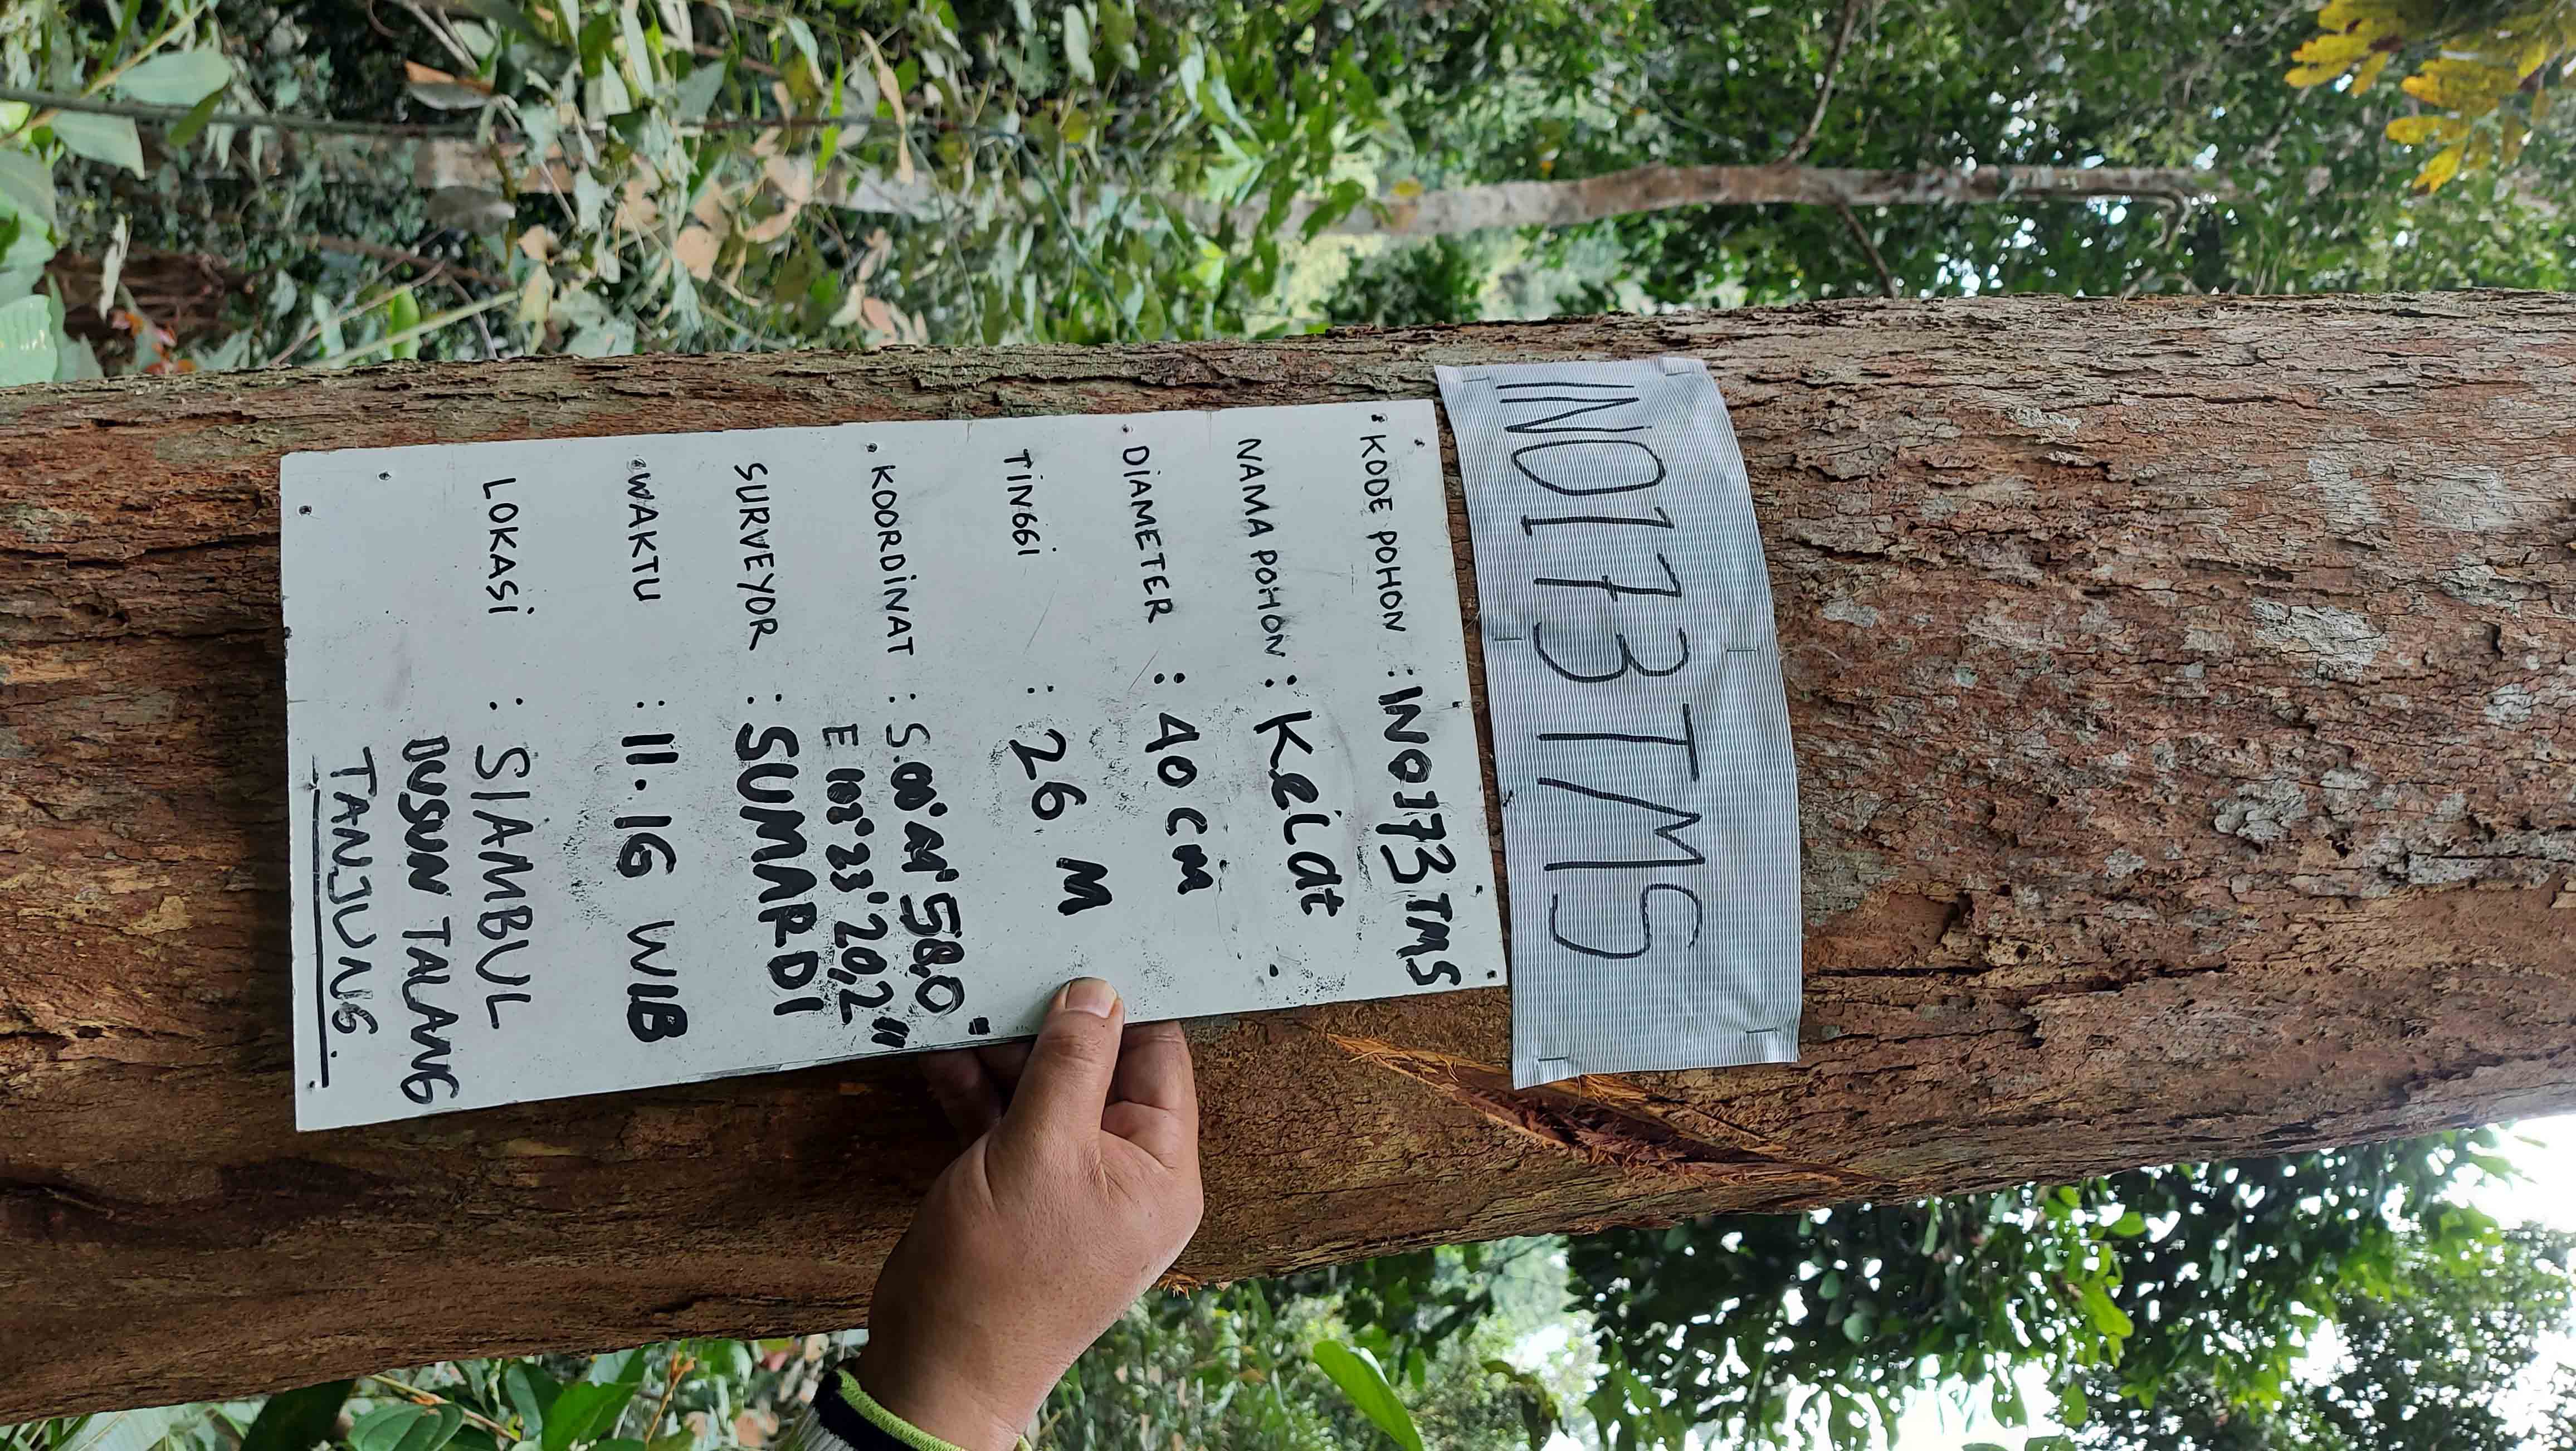 IN0173TMS
KODE POHON : IN0173 TMS
NAMA POHON : Kelat
DIAMETER : 40 CM
TINGGI : 26 M
KOORDINAT : S.00°44'58,0"
E 102°23'20,2"
SURVEYOR : SUMARDI
WAKTU : 11.16 WIB
LOKASI : SIAMBUL
DUSUN TALANG
TANJUNG.